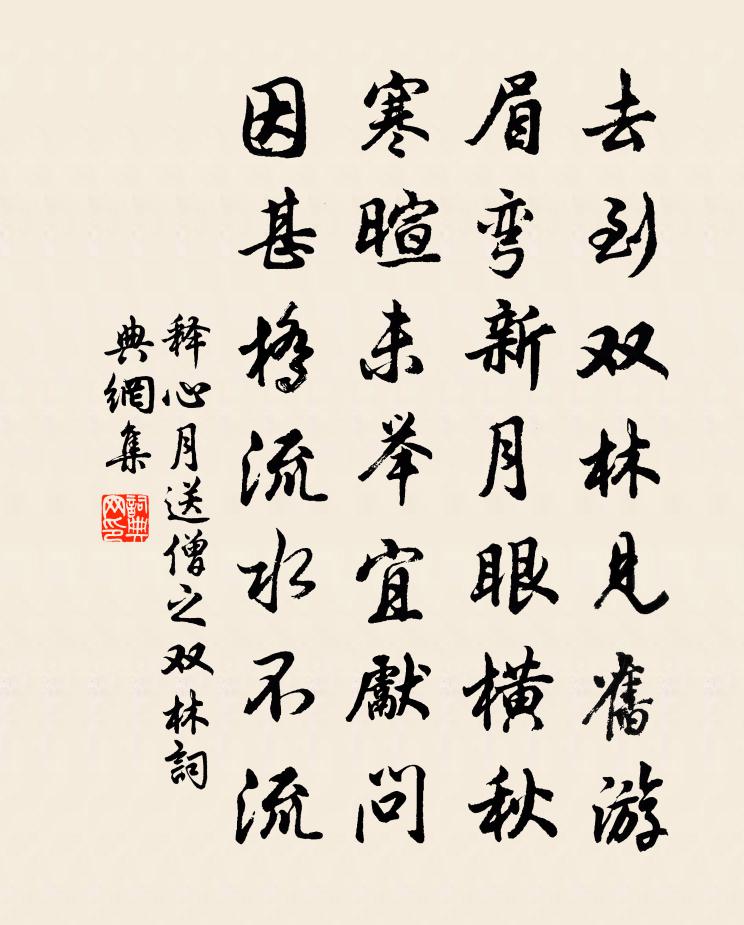 去到双林见舊游
眉弯新月眼横秋
寒暄未举宜獻问
因甚橋流水不流
释心月送僧之双林詞
典網集
詞典网印